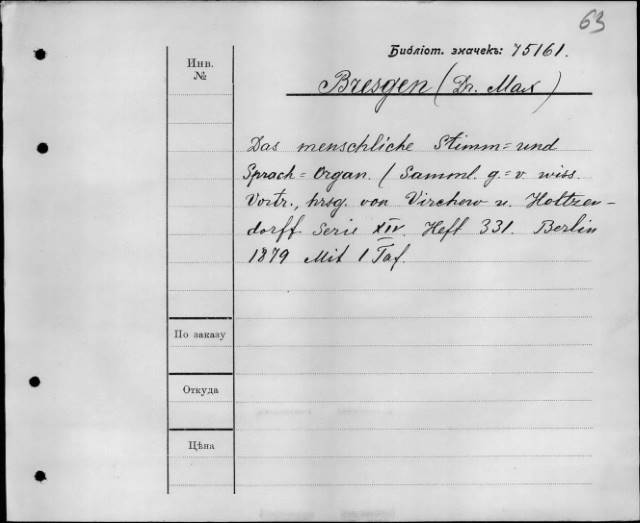 63
Библіот. значекъ: 75161.
Инв.
№
Bresgen (Dr. Max)
Das menschliche Stimm= und
Sprach=Organ. (Samml. g.=v. wiss.
Vortr., hrsg. von Virchow u. Holtzen-
dorff Serie XIV. Heft 331. Berlin
1879 Mit 1 Taf.
По заказу
Откуда
Цѣна